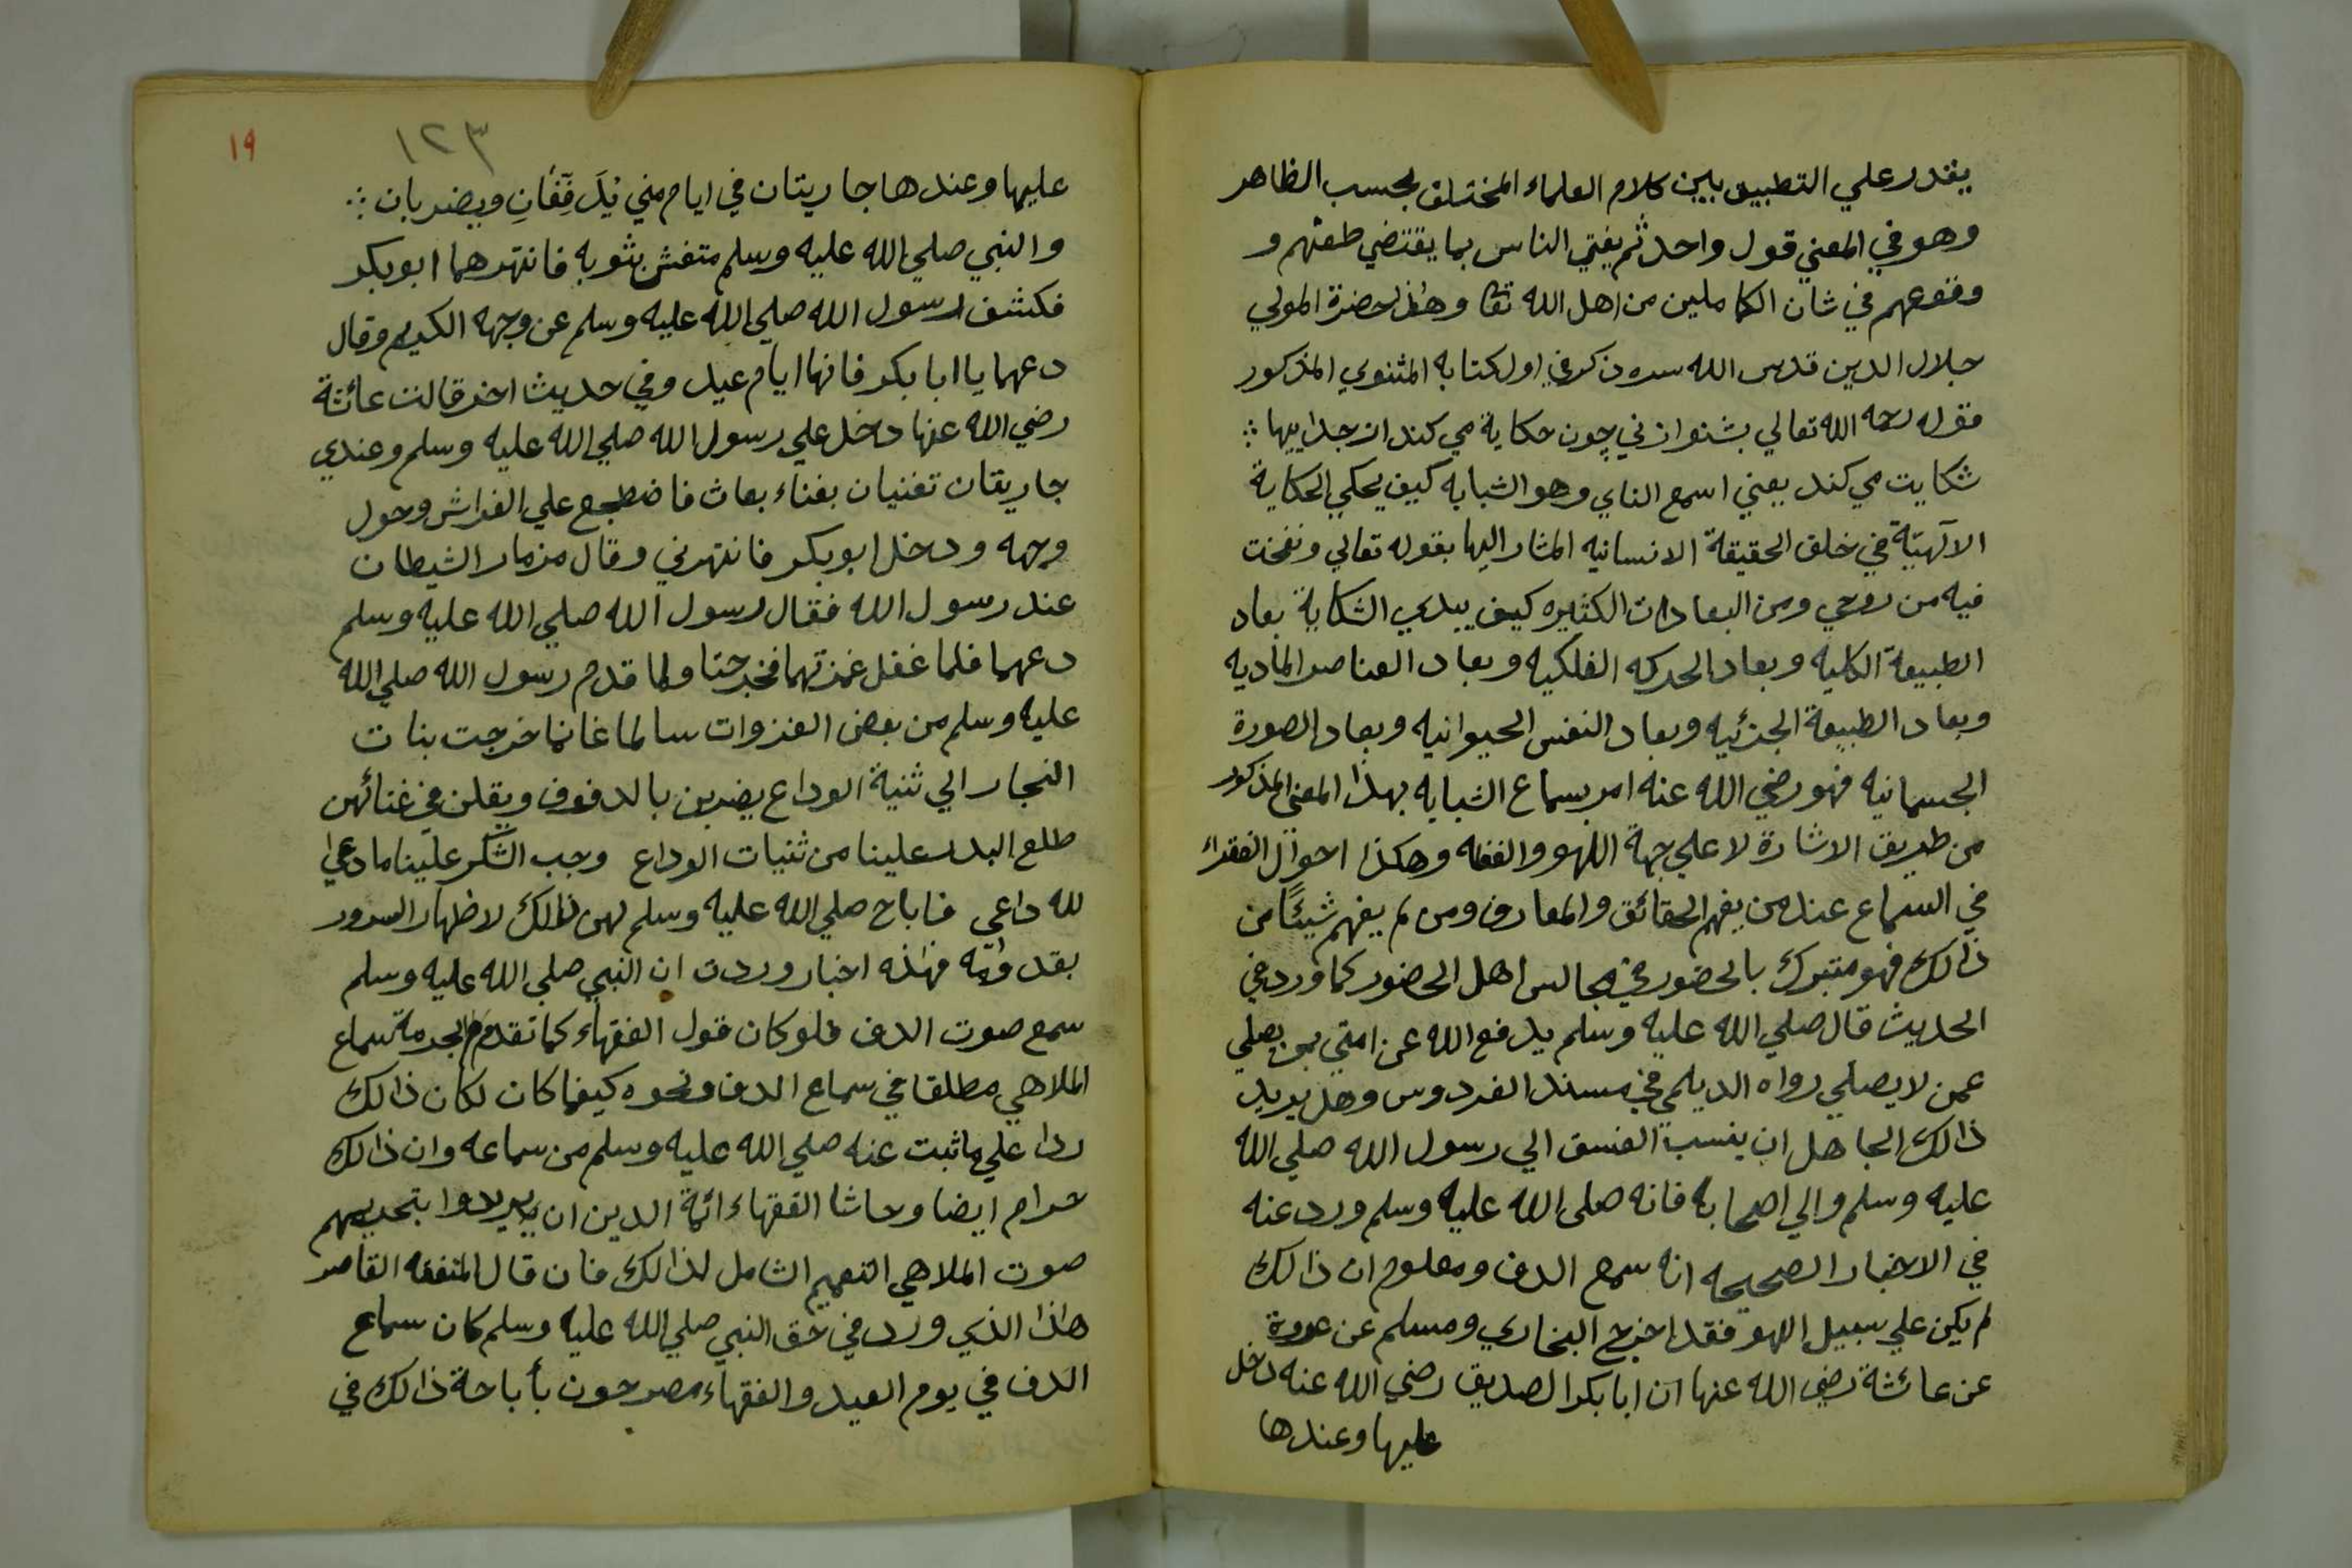 يقدر علي التطبيق بين كلام العلماء المختلف بحسب الظاهر
وهو في المعني قول واحد ثم يفتي الناس بما يقتضي طعنهم و
وقوعهم في شان الكاملين من اهل الله تعا وهذا حضرة المولي
جلال الدين قدس الله سره ذكر في اول كتابه المثنوي المذكور
قوله رحمه الله تعالي بشنو از ني چون حكاية مي كند از جداييها ؞
شكايت مي كند يعني اسمع الناي وهو الشبابه كيف يحكي الحكاية
الآلهيّة في خلق الحقيقة الانسانيه المشار اليها بقوله تعالي ونفخت
فيه من روحي ومن البعادات الكثيره كيف يبدي الشكاية بعاد
الطبيعة الكليه وبعاد الحركه الفلكيه وبعاد العناصر الماديه
وبعاد الطبيعة الجزئيه وبعاد النفس الحيوانيه وبعاد الصورة
الجسمانيه فهو رضي الله عنه امر بسماع الشبابه بهذا المعني المذكور
من طريق الاشارة لا علي جهة اللهو والغفله وهكذا احوال الفقراء
في السماع عند من يفهم الحقائق والمعارف ومن لم يفهم شيئًا من
ذالك فهو متبرك بالحضور في مجالس اهل الحضور كما ورد في
الحديث قال صلي الله عليه وسلم يدفع الله عن امتي بمن يصلي
عمن لا يصلي رواه الديلمي في مسند الفردوس وهل يريد
ذالك الجاهل ان ينسب الفسق الي رسول الله صلي الله
عليه وسلم والي اصحابه فانه صلى الله عليه وسلم ورد عنه
في الاخبار الصحيحه انه سمع الدف ومعلوم ان ذالك
لم يكن علي سبيل اللهو فقد اخرج البخاري ومسلم عن عروة
عن عائشة رضي الله عنها ان ابا بكر الصديق رضي الله عنه دخل
عليها وعندها
١٩
١٢٣
عليها وعندها جاريتان في ايام مني يُدَفِّفَانِ ويضربان ؞
والنبي صلي الله عليه وسلم متغش بثوبه فانتهرهما ابوبكر
فكشف رسول الله صلي الله عليه وسلم عن وجهه الكريم وقال
دعهما يا ابا بكر فانها ايام عيد وفي حديث اخر قالت عائشة
رضي الله عنها دخل علي رسول الله صلي الله عليه وسلم وعندي
جاريتان تغنيان بغناء بعاث فاضطجع علي الفراش وحول
وجهه ودخل ابوبكر فانتهرني وقال مزمار الشيطان
عند رسول الله فقال رسول الله صلي الله عليه وسلم
دعهما فلما غفل غمزتهما فخرجتا ولما قدم رسول الله صلي الله
عليه وسلم من بعض الغزوات سالما غانما خرجت بنات
النجار الي ثنية الوداع يضربن بالدفوف ويقلن في غنائهن
طلع البدر علينا من ثنيات الوداع وجب الشكر علينا ما دعي
لله داعي فاباح صلي الله عليه وسلم لهن ذالك لاظهار السرور
بقدومه فهذه اخبار وردت ان النبي صلي الله عليه وسلم
سمع صوت الدف فلو كان قول الفقهاء كما تقدم بحرمة سماع
الملاهي مطلقا في سماع الدف ونحوه كيفما كان لكان ذالك
ردا علي ما ثبت عنه صلي الله عليه وسلم من سماعه وان ذالك
حرام ايضا وحاشا الفقهاء ائمة الدين ان يريدوا بتحريمهم
صوت الملاهي التعميم الشامل لذالك فان قال المتفقه القاصر
هاذا الذي ورد في حق النبي صلي الله عليه وسلم كان سماع
الدف في يوم العيد والفقهاء مصرحون بأباحة ذالك في